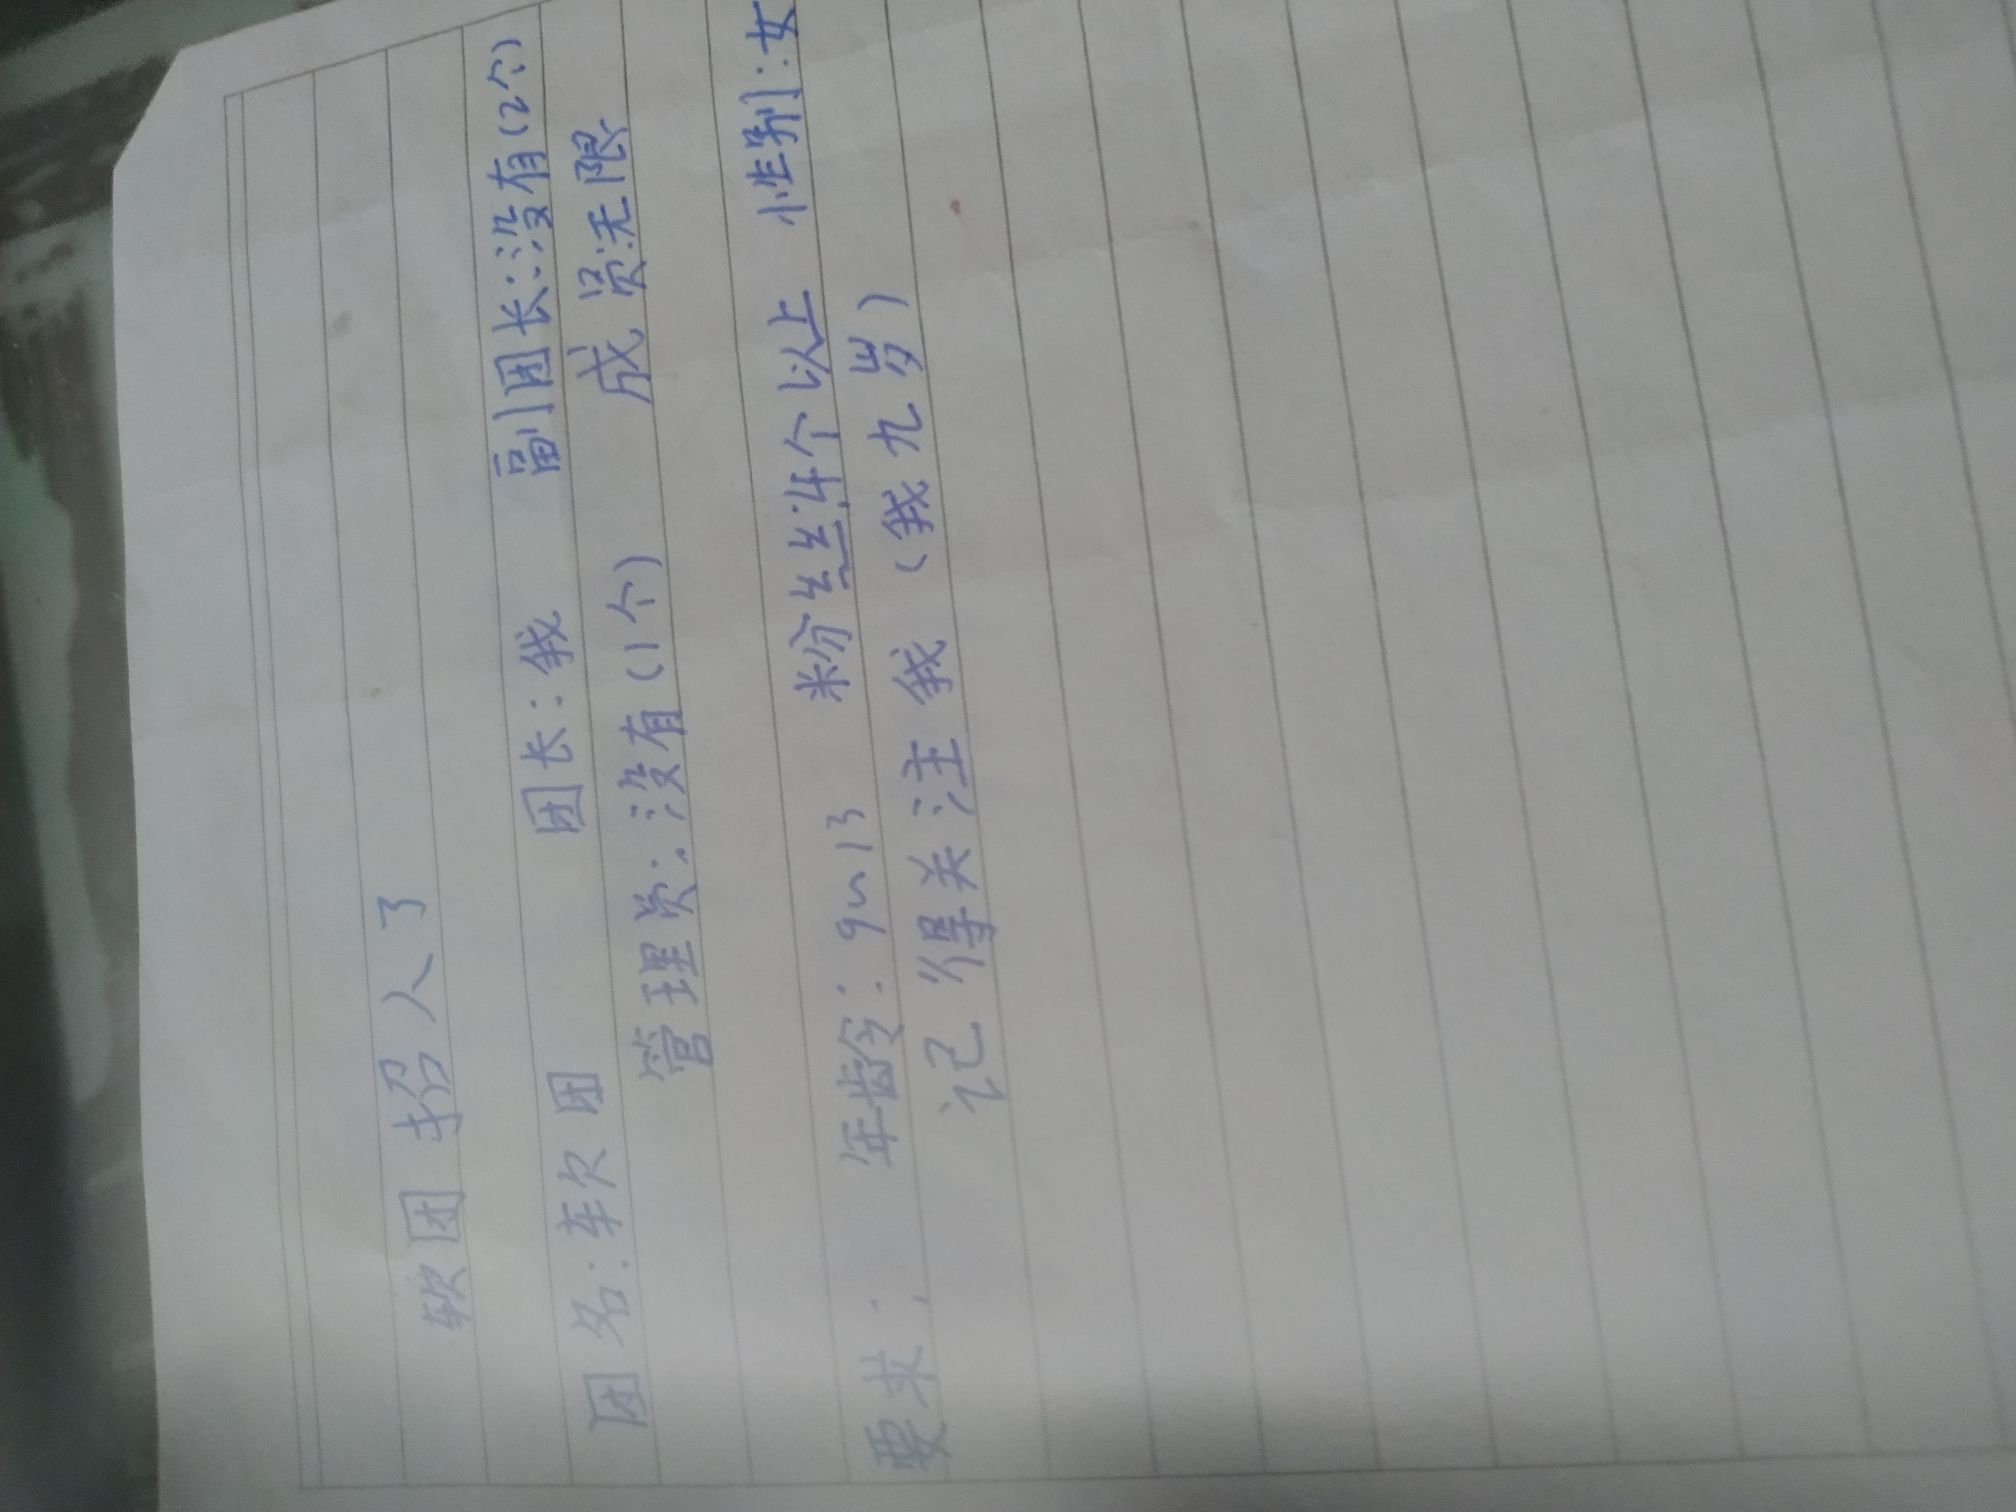 软团招人了
团名:软团 团长:我 副团长:没有(2个)
管理员:没有(1个) 成员:无限
要求: 年龄:9~13 粉丝:4个以上 性别:女
记得关注我 (我九岁)